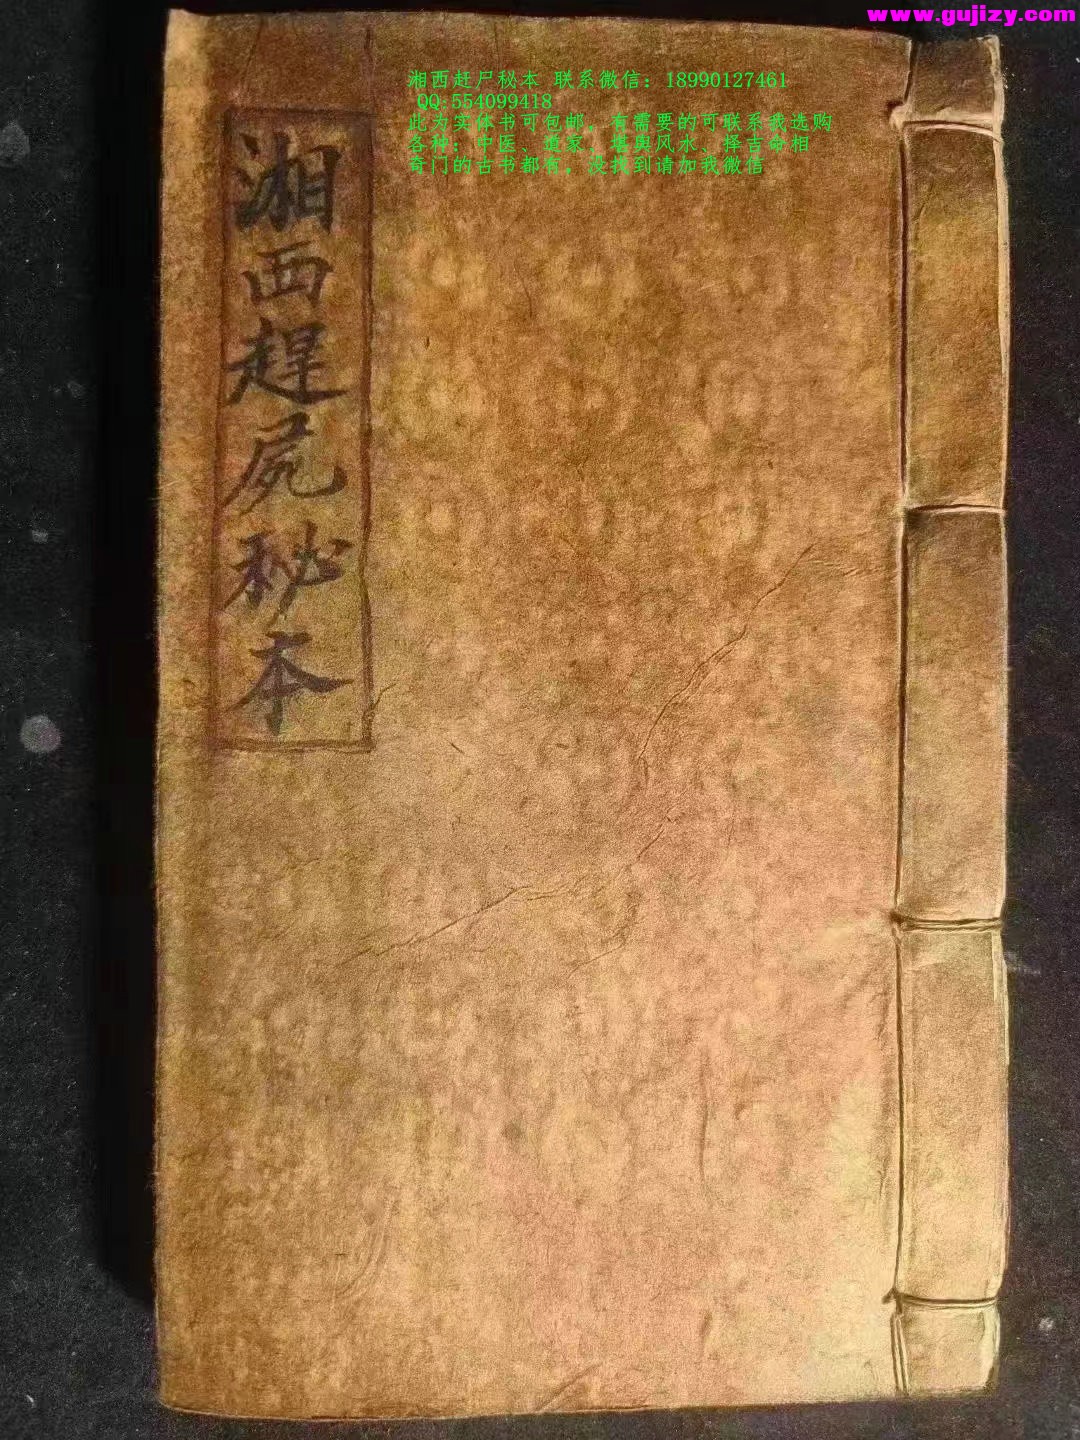 www.gujizy.com
湘西赶尸秘本 联系微信：18990127461
QQ:554099418
此为实体书可包邮，有需要的可联系我选购
各种：中医、道家、堪舆风水、择吉命相
奇门的古书都有，没找到请加我微信
湘西趕屍秘本